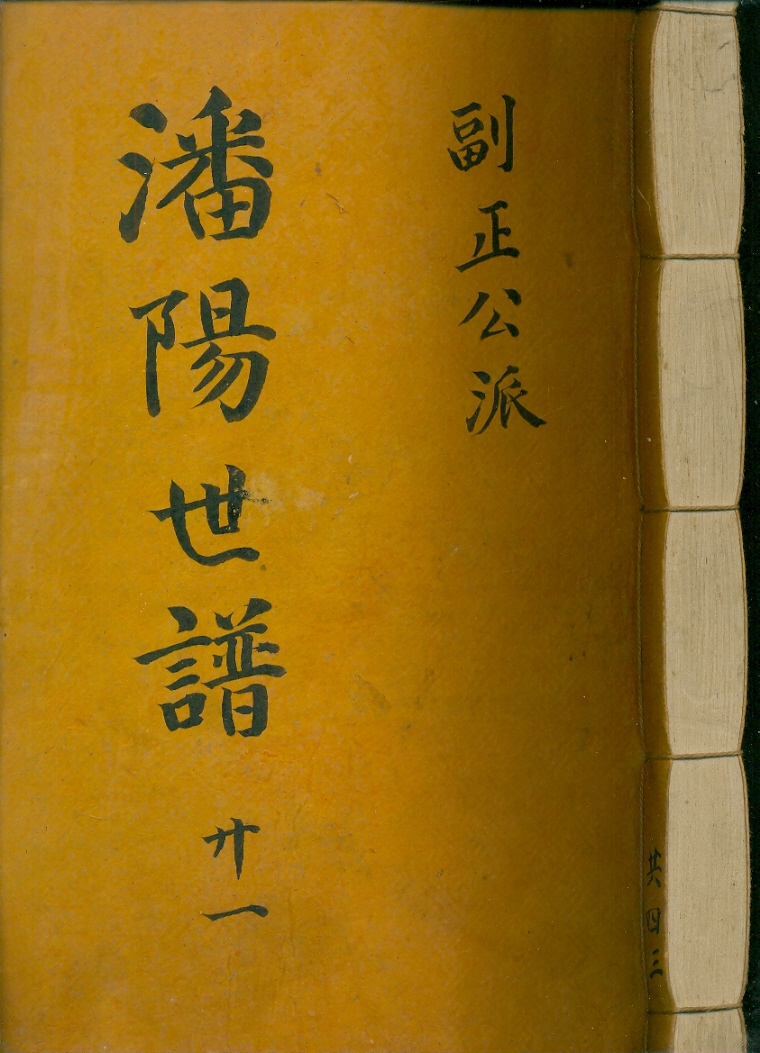 副正公派
潘陽世譜
卄一
共四三